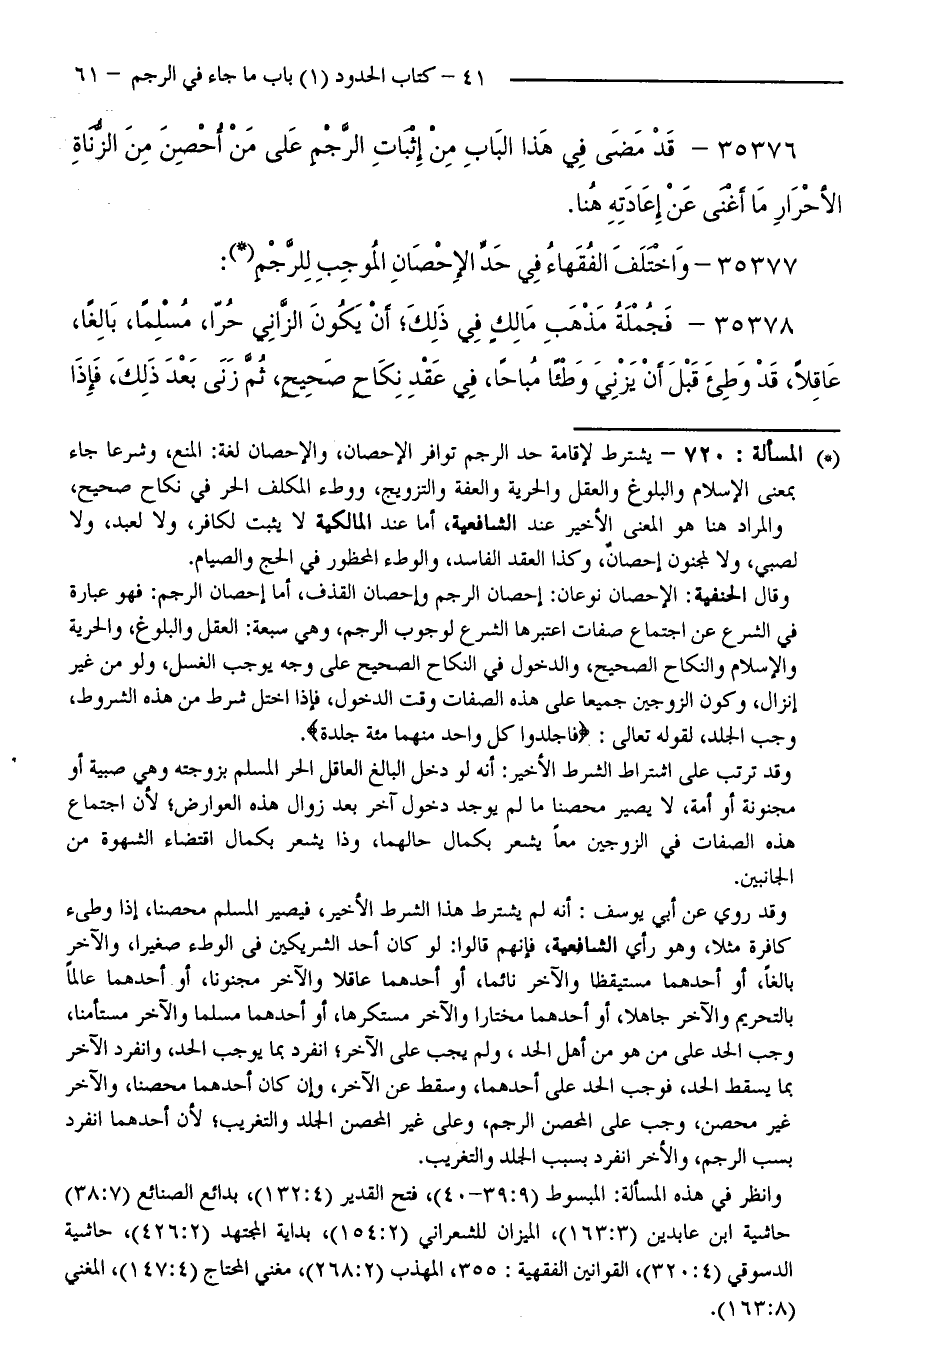 ٤١ – كتاب الحدود (١) باب ما جاء في الرجم – ٦١
٣٥٣٧٦ – قَدْ مَضَى فِي هَذَا البَابِ مِنْ إِثْبَاتِ الرَّجْمِ عَلى مَنْ أُحْصِنَ مِنَ الزُّنَاةِ
الأَحْرَارِ مَا أَغْنَى عَنْ إِعَادَتِهِ هُنا.
٣٥٣٧٧ – وَاخْتَلَفَ الفُقَهاءُ فِي حَدِّ الإِحْصَانِ المُوجِبِ لِلرَّجْمِ(*):
٣٥٣٧٨ – فَجُمْلَةُ مَذْهَبِ مَالِكٍ فِي ذَلِكَ؛ أَنْ يَكُونَ الزَّانِي حُرّا، مُسْلِمًا، بَالِغًا،
عَاقِلاً، قَدْ وَطِئَ قَبْلَ أَنْ يَزْنِيَ وَطْئًا مُباحًا، فِي عَقْدِ نِكَاحٍ صَحِيحٍ، ثُمَّ زَنَى بَعْدَ ذَلِكَ، فَإِذَا
(*) المسألة : ٧٢٠ – يشترط لإقامة حد الرجم توافر الإحصان، والإحصان لغة: المنع، وشرعا جاء
بمعنى الإسلام والبلوغ والعقل والحرية والعفة والتزويج، ووطء المكلف الحر في نكاح صحيح،
والمراد هنا هو المعنى الأخير عند الشافعية، أما عند المالكية لا يثبت لكافر، ولا لعبد، ولا
لصبي، ولا لمجنون إحصانٌ، وكذا العقد الفاسد، والوطء المحظور في الحج والصيام.
وقال الحنفية : الإحصان نوعان: إحصان الرجم وإحصان القذف، أما إحصان الرجم: فهو عبارة
في الشرع عن اجتماع صفات اعتبرها الشرع لوجوب الرجم، وهي سبعة: العقل والبلوغ، والحرية
والإسلام والنكاح الصحيح، والدخول في النكاح الصحيح على وجه يوجب الغسل، ولو من غير
إنزال، وكون الزوجين جميعا على هذه الصفات وقت الدخول، فإذا اختل شرط من هذه الشروط،
وجب الجلد، لقوله تعالى : ﴿فاجلدوا كل واحد منهما مئة جلدة﴾.
وقد ترتب على اشتراط الشرط الأخير: أنه لو دخل البالغ العاقل الحر المسلم بزوجته وهي صبية أو
مجنونة أو أمة، لا يصير محصنا ما لم يوجد دخول آخر بعد زوال هذه العوارض؛ لأن اجتماع
هذه الصفات في الزوجين معاً يشعر بكمال حالهما، وذا يشعر بكمال اقتضاء الشهوة من
الجانبين.
وقد روي عن أبي يوسف : أنه لم يشترط هذا الشرط الأخير، فيصير المسلم محصنا، إذا وطىء
كافرة مثلا، وهو رأي الشافعية، فإنهم قالوا: لو كان أحد الشريكين فى الوطء صغيرا، والآخر
بالغاً، أو أحدهما مستيقظا والآخر نائما، أو أحدهما عاقلا والآخر مجنونا، أو أحدهما عالماً
بالتحريم والآخر جاهلا، أو أحدهما مختارا والآخر مستكرها، أو أحدهما مسلما والآخر مستأمنا،
وجب الحد على من هو من أهل الحد ، ولم يجب على الآخر؛ انفرد بما يوجب الحد، وانفرد الآخر
بما يسقط الحد، فوجب الحد على أحدهما، وسقط عن الآخر، وإن كان أحدهما محصنا، والآخر
غير محصن، وجب على المحصن الرجم، وعلى غير المحصن الجلد والتغريب؛ لأن أحدهما انفرد
بسب الرجم، والأخر انفرد بسبب الجلد والتغريب.
وانظر في هذه المسألة: المبسوط (٩:٣٩-٤٠)، فتح القدير (٤:١٣٢)، بدائع الصنائع (٧:٣٨)
حاشية ابن عابدين (٣:١٦٣)، الميزان للشعراني (٢:١٥٤)، بداية المجتهد (٢:٤٢٦)، حاشية
الدسوقي (٤:٣٢٠)، القوانين الفقهية : ٣٥٥، المهذب (٢:٢٦٨)، مغني المحتاج (٤:١٤٧)، المغني
(٨:١٦٣).